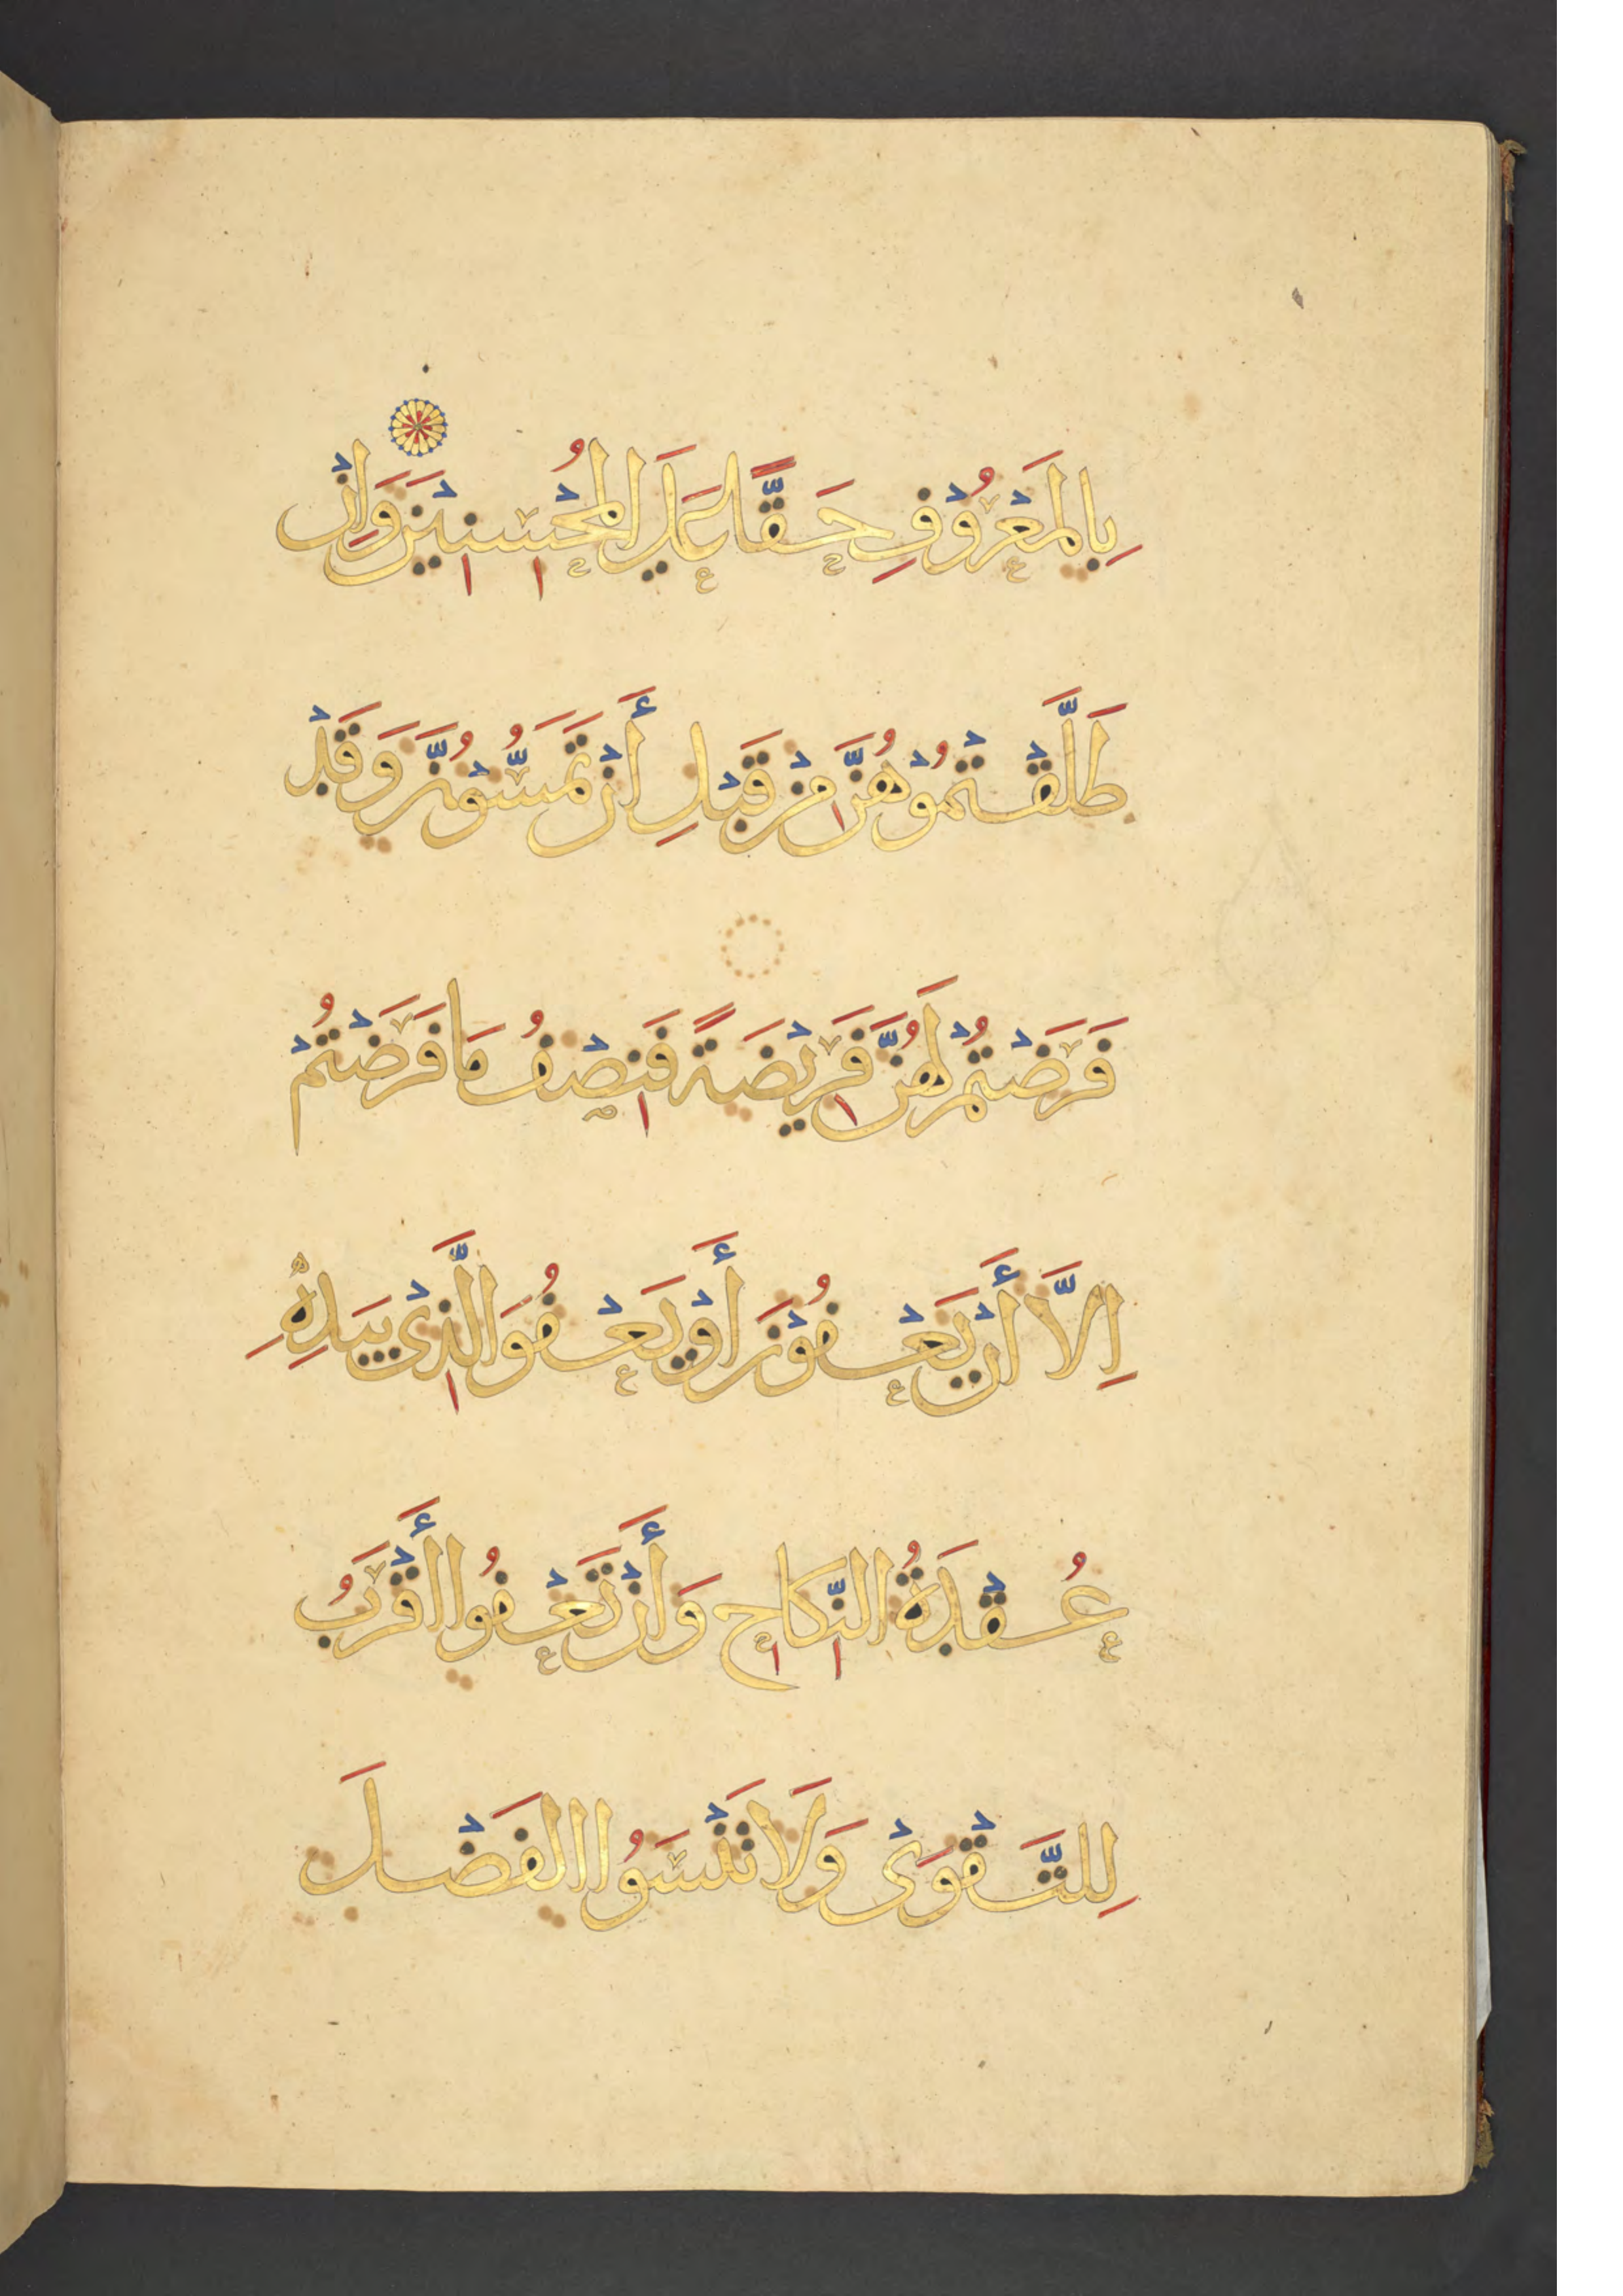 بِالمَعْرُوْفِ حَقًّا عَلَى المُحْسِنِيْنَ وَاِنْ
طَلَّقْتُمُوْهُنَّ مِنْ قَبْلِ أَنْ تَمَسُّوْهُنَّ وَقَدْ
فَرَضْتُمْ لَهُنَّ فَرِيْضَةً فَنِصْفُ مَا فَرَضْتُمْ
اِلَّا أَنْ يَعْفُوْنَ أَوْ يَعْفُوَ الَّذِىْ بِيَدِهِ
عُقْدَةُ النِّكَاحِ وَأَنْ تَعْفُوا أَقْرَبُ
لِلتَّقْوَىْ وَلَا تَنْسَوُا الفَضْلَ